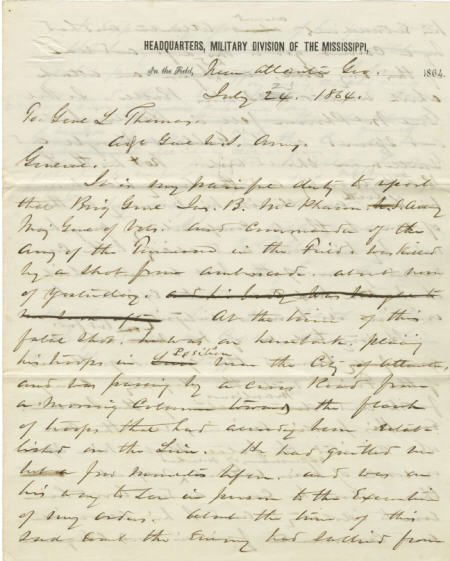 HEADQUARTERS, MILITARY DIVISION OF THE MISSISSIPPI,
In the Field, Near Atlanta Geo. 1864.
July 24. 1864.
To Genl L Thomas
Adjt Genl U.S. Army.
General.
It is my painful duty to report
that Brig Genl Jas. B. McPherson U.S. Army
Maj Genl of Vols. and commander of the
Army of the Tennessee in the Field. was killed
by a shot from ambuscade. about noon
of yesterday. and his body was
At the time of this
fatal shot. he was on horseback. placing
his troops in Line Position near the City of Atlanta,
and was passing by a cross Road from
a moving Column towards the flank
of troops that had already been estab
lished on the Line. He had quitted me
but a few minutes before. and was on
his way to see in person to the Execution
of my orders. about the time of this
sad event the Enemy had sallied from